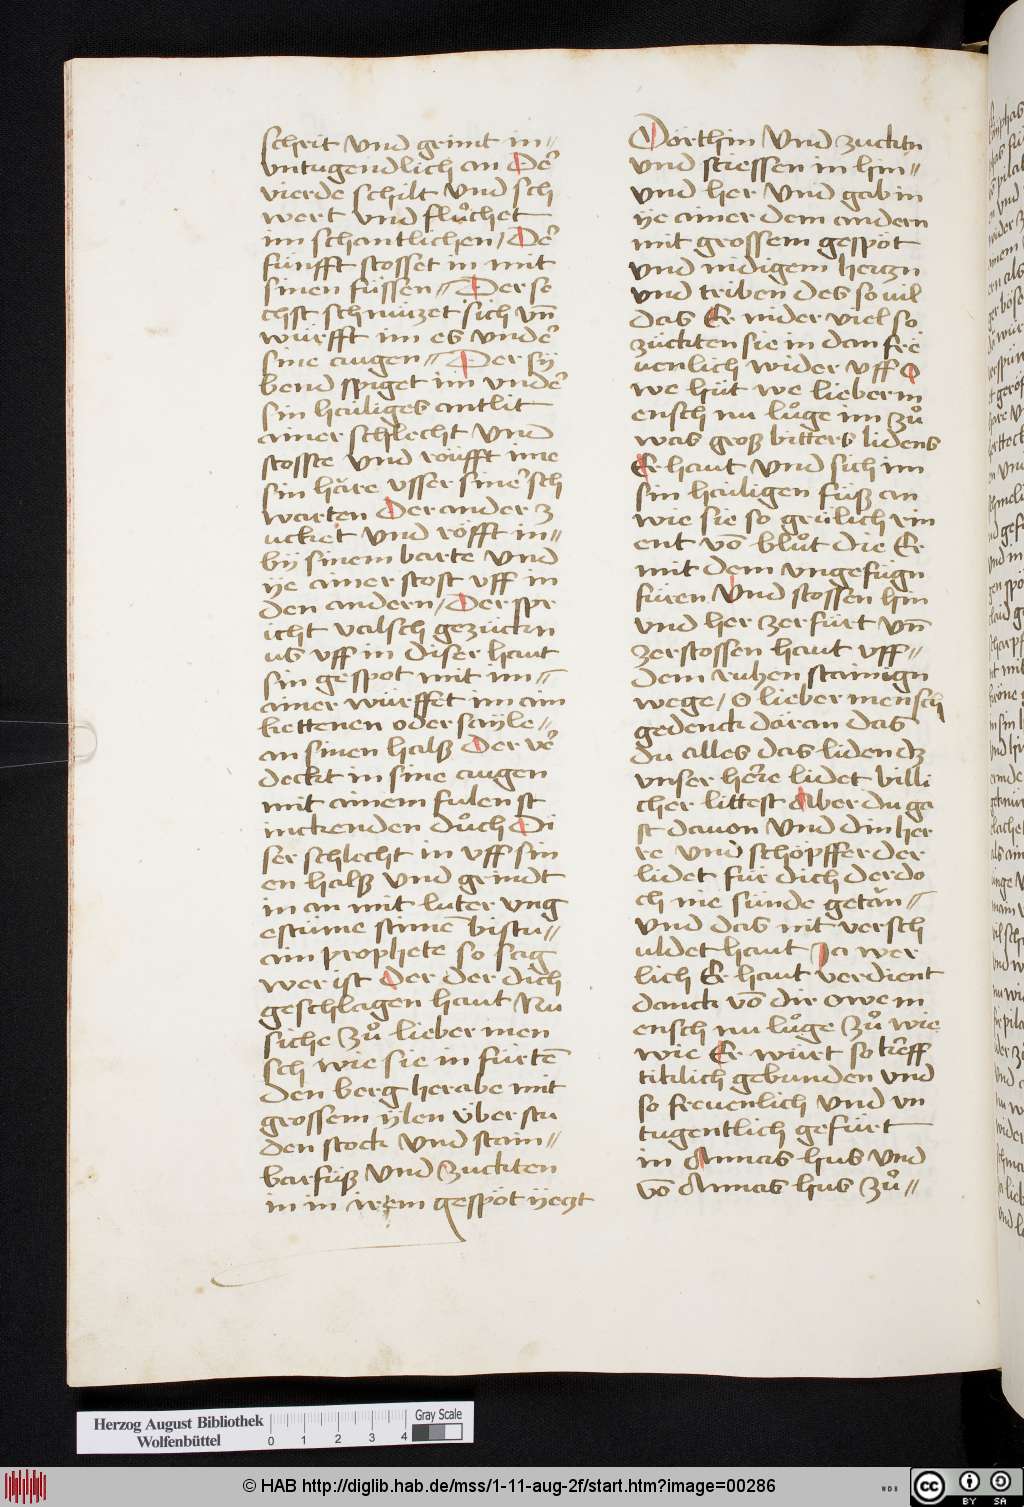 schrit vnd grint in〃
vntugendlich an Der̕
vierde schilt vnd sch
wert vnd flůchet
im schantlichen / Der̕
fünfft stosset in mit
sinen füssen〃 Der se
chst schnüzet sich vn̄
würfft im es vnder̕
sine augen〃 Der sÿ
bend spiget im vnder̕
sin hailiges antlit
ainer schlecht vnd
stosste vnd röufft ime
sin håre vsser siner̕ sch
warten Der ander z
ucket vnd röfft in〃
bij sinem barte vnd
ÿe ainer stost vff in
den andern / Der spr
icht valsch gezückn
us vff in diser haut
sin gespot mit im〃
ainer würffet im ain
kettenen oder sayle〃
an sinen halß Der ver̕
deckt in sine augen
mit ainem fulen st
inckenden důch Di
ser schlecht in vff sin
en halß vnd grindt
in an mit luter vng
estüme stimē bistu〃
ain prophete so sag
wer ist der der dich
geschlagen haut Nu
siche zů lieber men
sch wie sie in fürtē
den berg herabe mit
grossem ÿlen über stu
den stock vnd stain〃
barfüß vnd zuckten
in in irem gespöt ÿetzt
Dörthin vnd zucktn
vnd stiessen in hin〃
vnd her vnd gab in
ÿe ainer dem andern
mit grossem gespöt
vnd nidigem hertzn
vnd triben des souil
das Er nider viel so
zückten sie in dan fre
uenlich wider vff O
we hüt we lieber m
ensch nu lůge im zů
was groß bitters lidens
Er haut vnd sich im
sin hailigen füß an
wie sie so grülich rin
ent vō blůt die Er
mit dem vngefügn
füren vnd stossen hin
vnd her zerfürt vn̄
zerstossen haut vff〃
dem ruhen stainign
wege / O lieber mensch
gedenck daran das
du alles das liden dz
vnser here lidet billi
cher littest Aber du ga
st dauon vnd din her
re vnd schöpffer der
lidet für dich der do
ch nie sünde getän〃
vnd das nit versch
uldet haut Ja wer
lich Er haut verdient
danck vō dir owe m
ensch nu lůge zů wie
wie Er würt so treff
titilich gebunden vnd
so freuenlich vnd vn
tugentlich gefürt
in Annas hus vnd
vō Annas hus zů〃
Herzog August Bibliothek
Wolfenbüttel
0 1 2 3 4
Gray Scale
© HAB http://diglib.hab.de/mss/1-11-aug-2f/start.htm?image=00286
WDB
cc BY SA